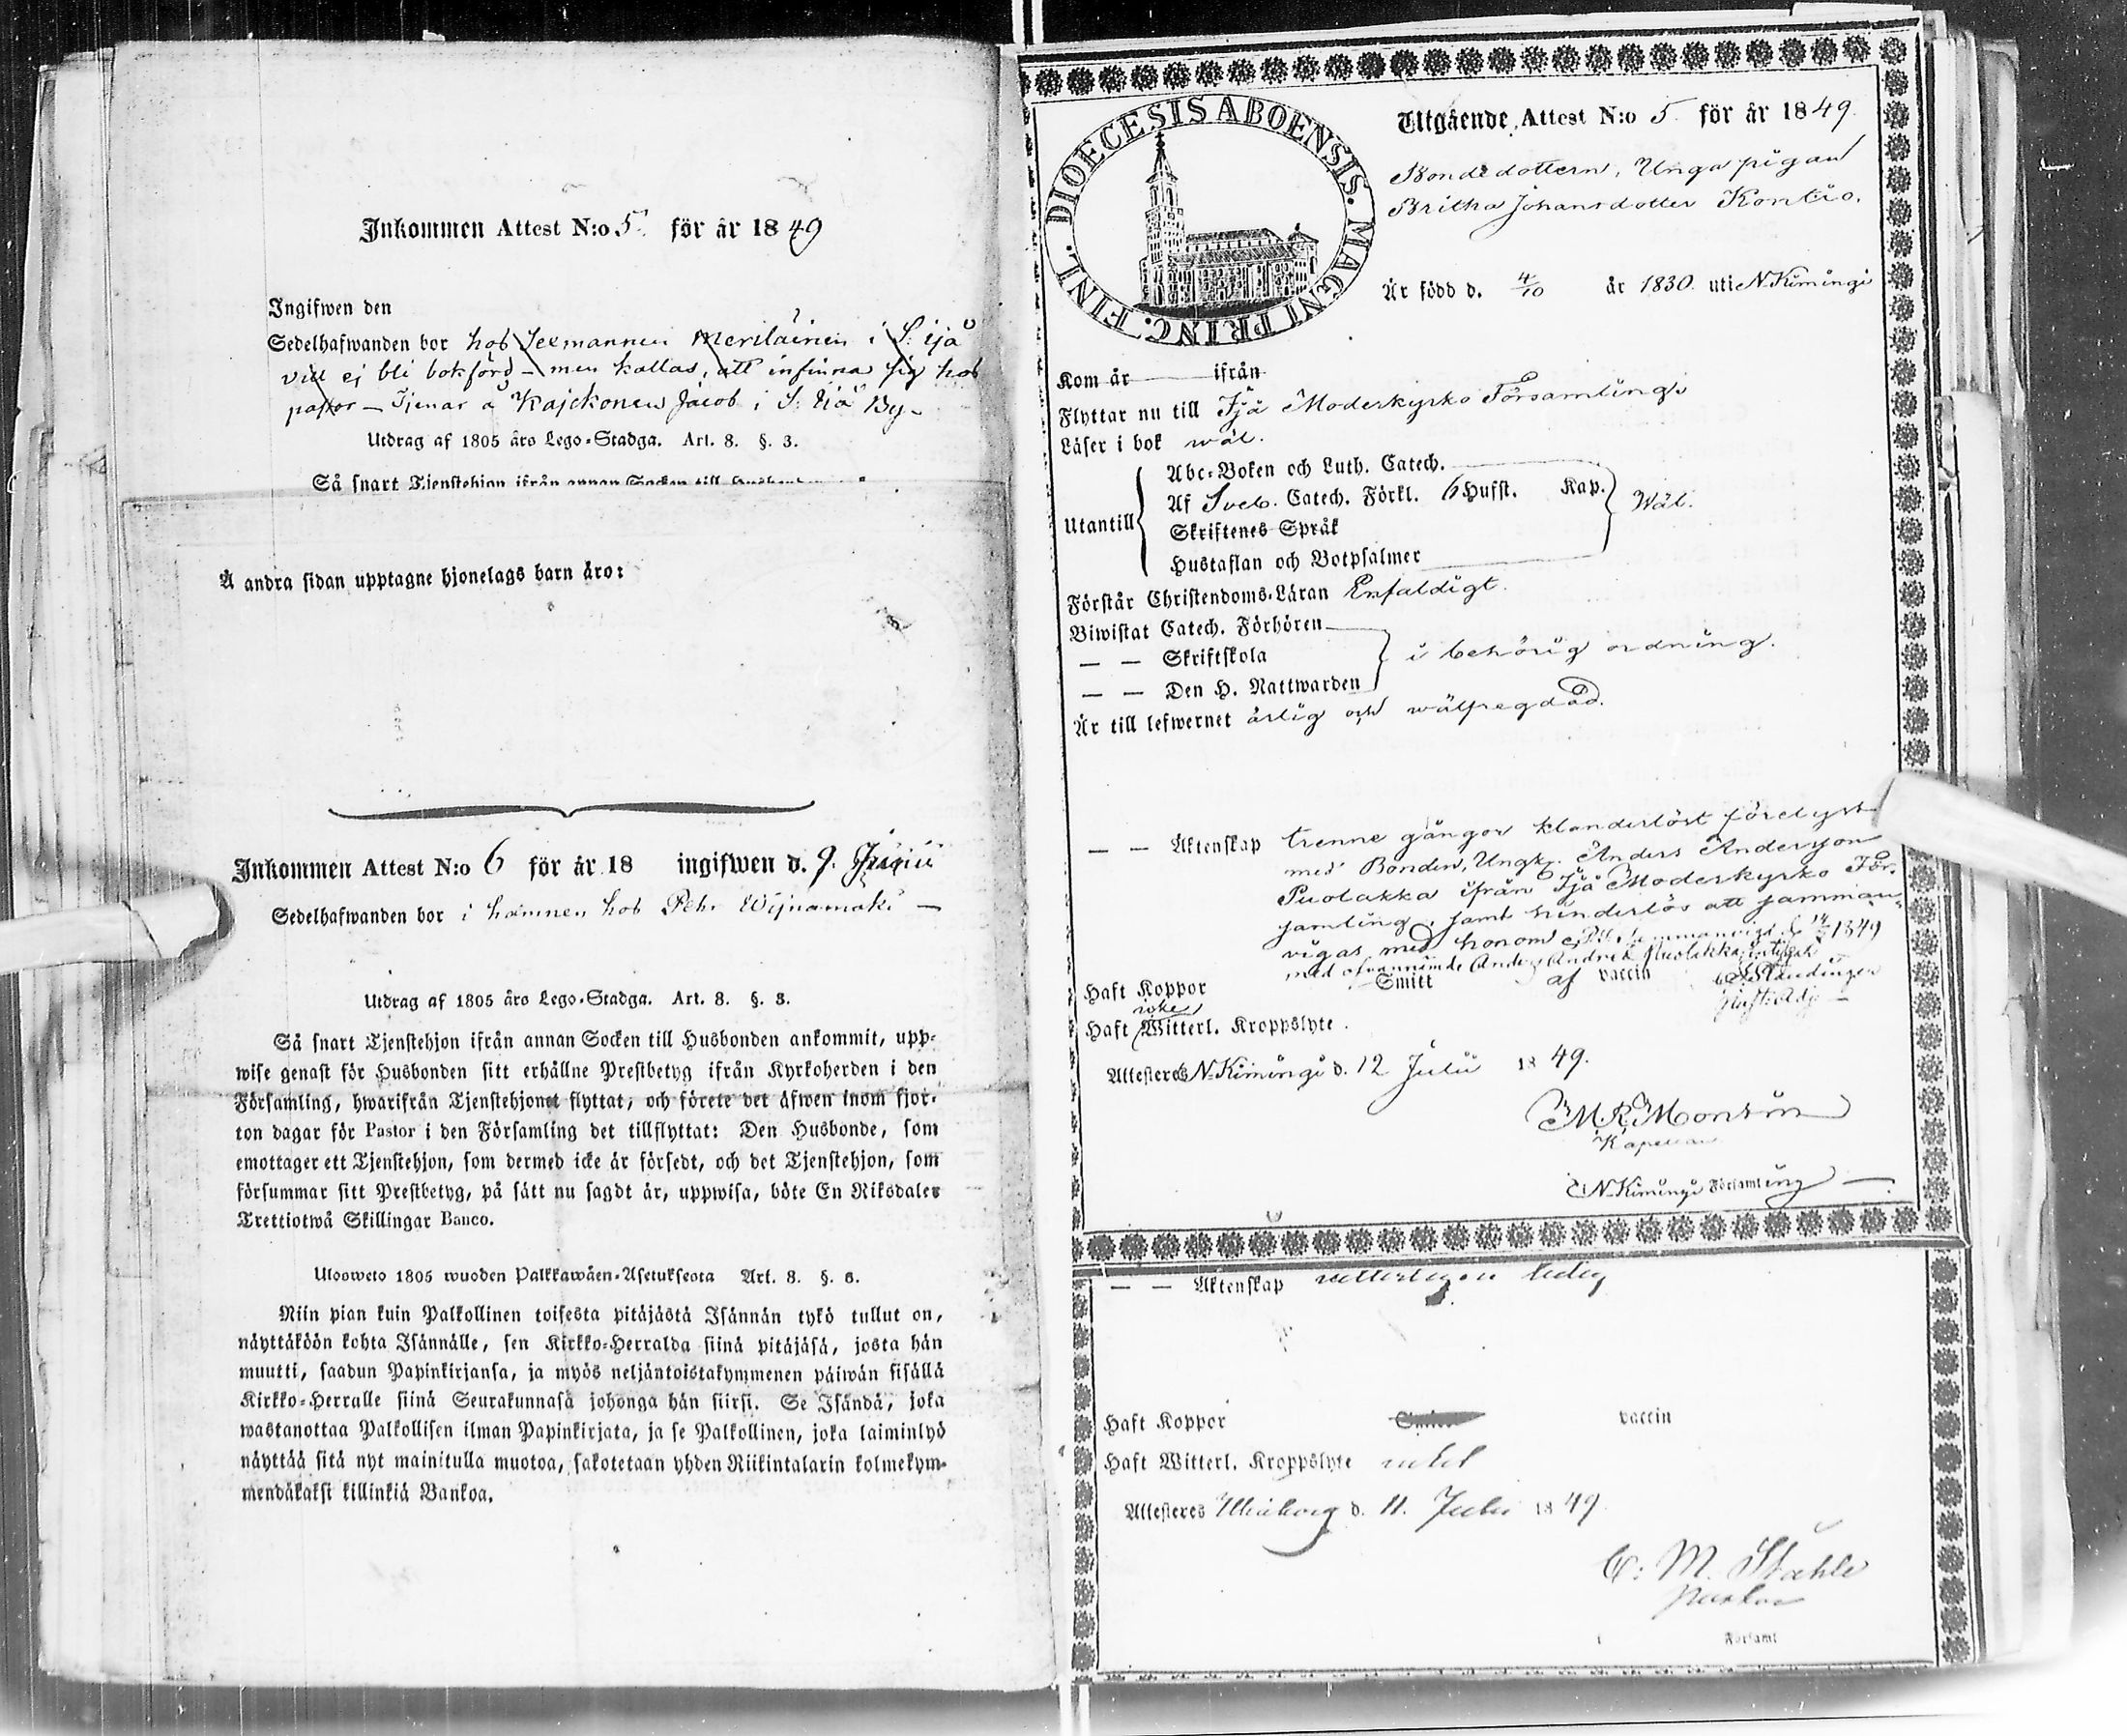 Inkommen Attest N:o 5. för år 1849
Ingifwen den
Sedelhafwanden bor hos Seemannen Meriläinen i S: Ijå
vill ej bli bokförd – men kallas, att infinna sig hos
pastor – Tjenar å Kajckonen Jacob i S. Ijå By –
Utdrag af 1805 års Lego-Stadga. Art. 8. §. 3.
Så snart Tjenstehjon ifrån annan Socken till
Å andra sidan upptagne hjonelags barn äro:
Inkommen Attest N:o 6 för år 18 ingifwen d. 9.
Sedelhafwanden bor i hamnen hos Pehr Wijnamaki –
Utdrag af 1805 års Lego-Stadga. Art. 8. §. 3.
Så snart Tjenstehjon ifrån annan Socken till Husbonden ankommit, upp-
wise genast för Husbonden sitt erhållne Prestbetyg ifrån Kyrkoherden i den
Församling, hwarifrån Tjenstehjonet flyttat, och förete det äfwen inom fjor-
ton dagar för Pastor i den Församling det tillflyttat: Den Husbonde, som
emottager ett Tjenstehjon, som dermed icke är försedt, och det Tjenstehjon, som
försummar sitt Prestbetyg, på sätt nu sagdt är, uppwisa, böte En Riksdaler
Trettiotwå Skillingar Banco.
Ulosweto 1805 wuoden Palkkawäen-Asetuksesta Art. 8. §. 3.
Niin pian kuin Palkollinen toisesta pitäjästä Isännän tykö tullut on,
näyttäköön kohta Isännälle, sen Kirkko-Herralda siinä pitäjäsä, josta hän
muutti, saadun Papinkirjansa, ja myös neljäntoistakymmenen päiwän sisällä
Kirkko-Herralle siinä Seurakunnasa johonga hän siirsi. Se Isändä, joka
wastanottaa Palkollisen ilman Papinkirjata, ja se Palkollinen, joka laiminlyö
näyttää sitä nyt mainitulla muotoa, sakotetaan yhden Riikintalarin kolmekym-
mendäkaksi killinkiä Bankoa.
DIOECESIS ABOENSIS. MAGNI PRINC. FINL.
Utgående Attest N:o 5 för år 1849.
Bondedottern, Unga pigan
Britha Johansdotter Kontio.
Är född d. 4/10 år 1830. uti N. Kiminge
Kom år ifrån
Flyttar nu till Ijå Moderkyrko Församling
Läser i bok wäl.
Utantill
Abc-Boken och Luth. Catech.
Af Sveb. Catech. Förkl. 6 Hufst. Kap.
Skriftenes Språk
Hustaflan och Botpsalmer
Wäl.
Förstår Christendoms-Läran Enfaldigt.
Biwistat Catech. Förhören
— — Skriftskola
— — Den H. Nattwarden
i behörig ordning.
Är till lefwernet ärlig och wälfregdad.
— — Äktenskap trenne gångor klanderlöst förelyst
med Bonden, Ungk. Anders Andersson
Puolakka ifrån Ijå Moderkyrko För-
samling, samt hinderlös att samman-
vigas med honom 14/7 1849
med ofvannämde Anders Puolakka, intygar
Haft Koppor Smitt af vaccin
Haft icke Witterl. Kroppslyte.
Attesteras N. Kiminge d. 12 Julii 1849.
M R Montin
Kapellan
i N. Kiminge Församling
— — Äktenskap ledig
Haft Koppor vaccin
Haft Witterl. Kroppslyte
Attesteres Uleåborg d. 11. Julii 1849.
C: M. Stahle
i Församl